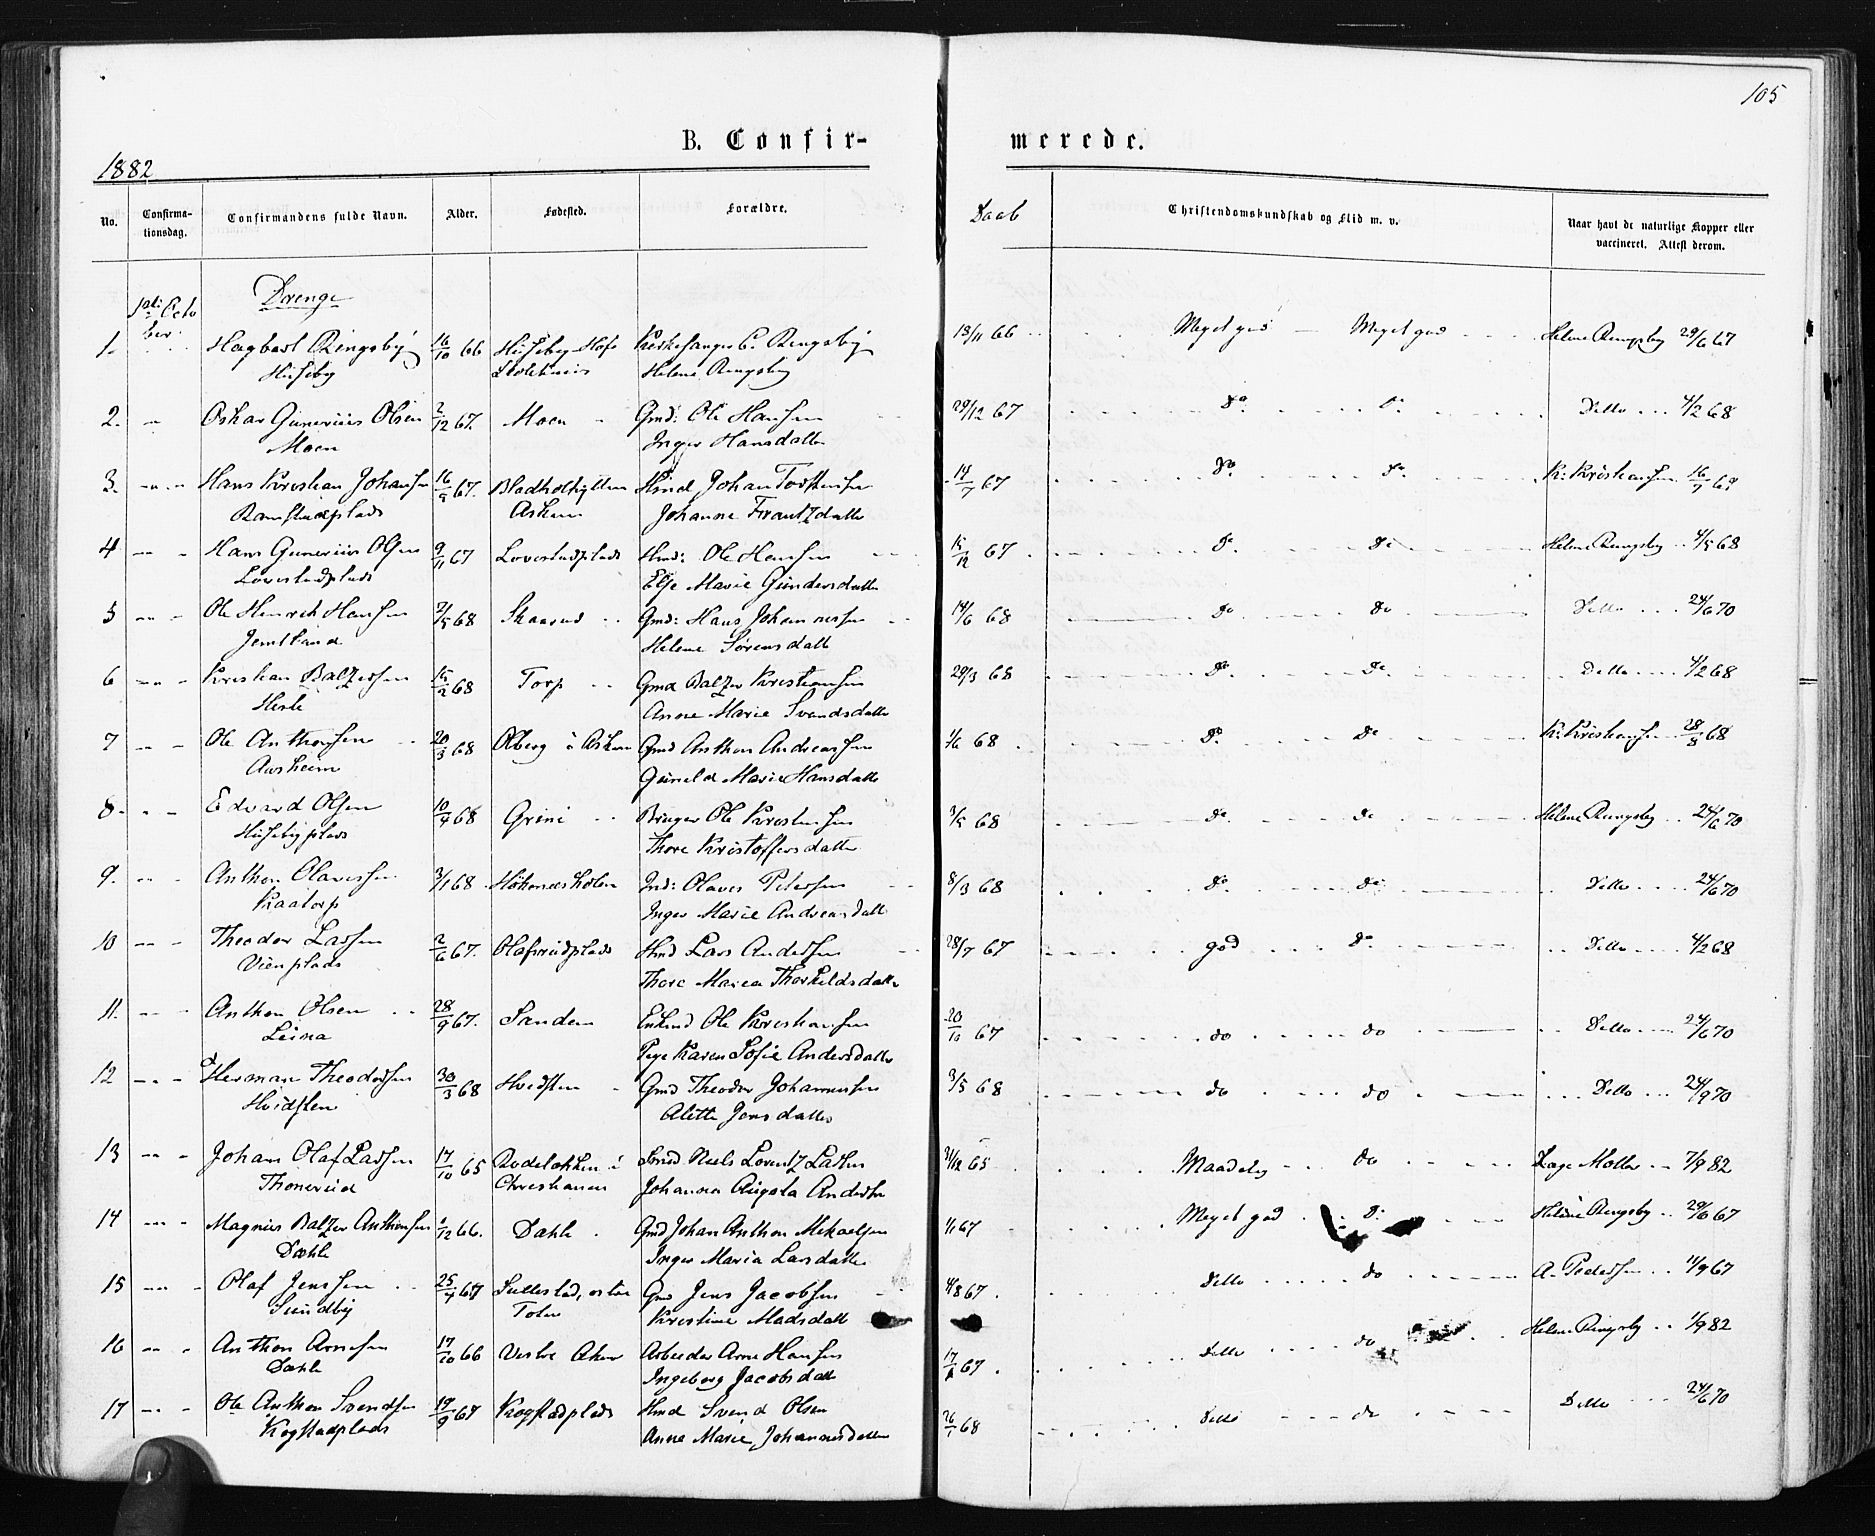 105
B. Confir-merede.
1882
No. Confirma-tionsdag. Confirmandens fulde Navn. Alder. Fødested. Forældre. Daab Christendomskundskab og Flid m. v. Naar havt de naturlige Kopper eller vaccineret. Attest derom.
1ste Octo Drenge
ber
1. Hagbart Ringsby 16/10 66 Huseby Kirkesanger C. Ringsby 18/11 66 Meget god Meget god Helene Ringsby 29/6 67
Huseby Helene Ringsby
2. " Oskar Gunerius Olsen 2/12 67. Moen Gmd: Ole Hansen 29/12 67 Do. Do. Ditto 4/2 68
Moen Inger Hansdatter
3. " Hans Kristian Johansen 67. Hmd Johan 14/7 67 Do. Do. K. Kristiansen
Ramstadplads Askim Johanne Frantzdatter
4 " Hans Gunerius Olsen 9/11 67 Lovestadplads Hmd: Ole Hansen 15/12 67 Do. Do Helene Ringsby 4/5 68
Lovestadplads Else Marie Gundersdatter
5 " Ole Henrik Hansen 2/5 68 Skaarud Gmd: Hans Johannessen 14/6 68 Do Do Ditto 24/6 70
Jemtland Helene Sørensdatt
6 " Kristian Baltzersen 68 Torp Gmd Baltzer Kristiansen 29/3 68 Do. Do Ditto 4/2 68
Herli Anne Marie Svendsdatter
7 " Ole Anthonsen 20/3 68 Olberg i Askim Gmd Anthon Andreassen 68 Do. Do K. Kristiansen 28/8 68
Aasheim Gunild Marie Hansdatter
8. " Edvard Olsen 10/4 68 Grini Bruger Ole Kristensen 3/5 68 Do. Do Helene Ringsby 24/6 70
Husebyplads Thore Kristoffersdatter
9. " Anthon Olavessen 3/1 68 Ind: Olaves Petersen 8/3 68 Do Do Ditto 24/6 70
Kaatorp Inger Marie Andreasdatt
10 " Theodor Larsen 2/6 67. Olafsrudplads Hmd Lars Andersen 28/7 67 god Do Ditto 4/2 68
Vienplads Thore Maria Thorkildsdatter
11. " Anthon Olsen 28/9 67. Sanden Enkmd Ole Kristiansen 20/10 67 do do Ditto 24/6 70
Leina Pige Karen Sofie Andersdatter
12 " Herman Theodorsen 30/3 68 Hvidsten Gmd Theodor Johannessen 3/5 68 do do Ditto 24/9 70
Hvidsten Alette Jensdatter
13 " Johan Olaf Larsen 17/10 65 Rodeløkken i Niels Lorentz Larsen 31/12 65 Maadelig do Møller 7/9 82
Thonerud Christiania Johanna Augusta Anders
14 " Magnus Baltzer Anthonsen 12 66. Dahle Gmd Johan Anthon Mikaelsen 1/1 67 Meget god do Helene Ringsby 29/6 67
Dahle Inger Maria Larsdatter
15 " Olaf Jenssen 25/4 67 Sullestad, østre Gmd Jens Jacobsen 4/8 67. Ditto do A. Pedersen 11/9 67
Sundby Toten Kirstine Madsdatt
16 " Anthon Arnesen 17/10 66 Vestre Aker Arbeider Arne Hansen 67. Ditto do Helene Ringsby 1/9 82
Dahle Ingeborg Jacobsdatt
17 " Ole Anthon Svendsen 19/9 67 Kogstadplads Hmd Svend Olsen 26/1 68 Ditto do Ditto 24/6 70
Kogstadplads Anne Marie Johannesdatter